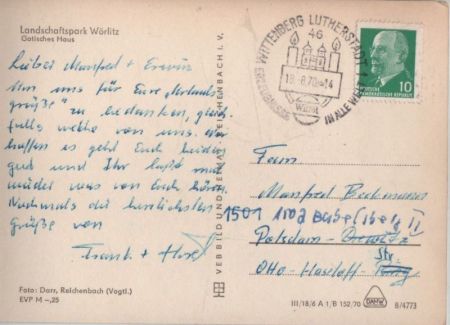 Landschaftspark Wörlitz
Gotisches Haus
Lieber Manfred + Erwin
Um uns für Eure Urlaubs
grüße zu bedanken, gleich-
falls welche von uns. Wir
hoffen es geht Euch beiden
gut und Ihr laßt mal
wieder was von Euch hören.
Nochmals die herzlichsten
Grüße von
Foto: Darr, Reichenbach (Vogtl.)
EVP M –,25
VEB BILD UND HEIMAT REICHENBACH I. V.
WITTENBERG LUTHERSTADT 1
46
18.-8.70-14
ERZEUGNISSE
IN ALLE WELT
10
DEUTSCHE DEMOKRATISCHE REPUBLIK
Fam
Manfred Beckmann
1501 Babelsberg II
Potsdam-Drewitz
Otto-Haseloff-Ring Str.
III/18/6 A 1/B 152/70
B/4773